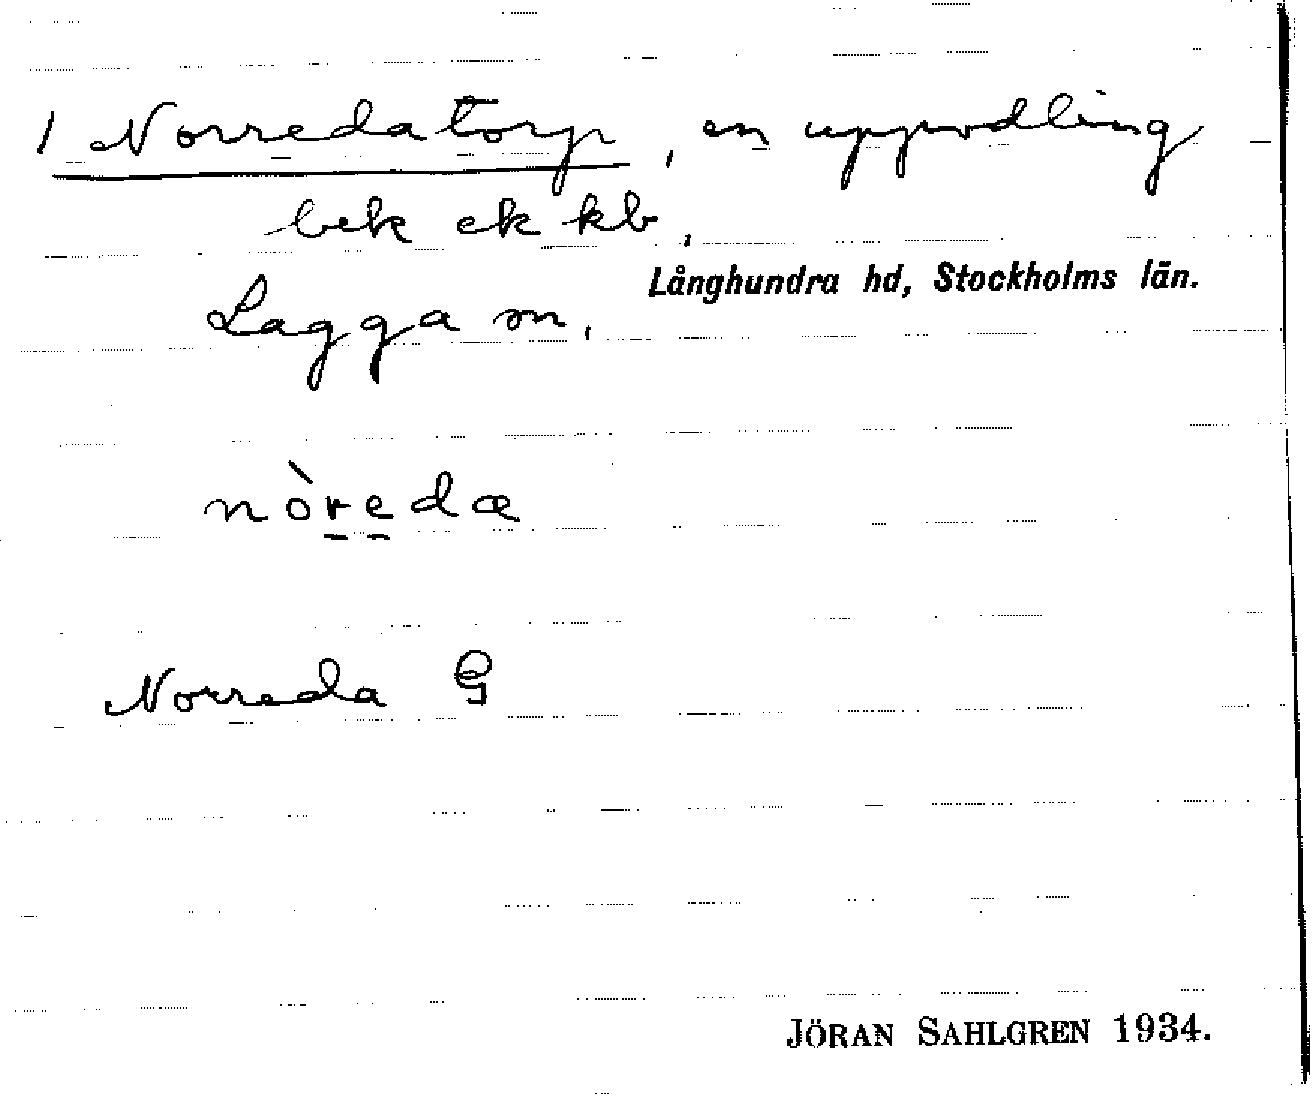 1 Norredatorp, en uppodling
bek ek kb,
Långhundra hd, Stockholms län.
Lagga sn,
nòreda
Norreda G
JÖRAN SAHLGREN 1934.